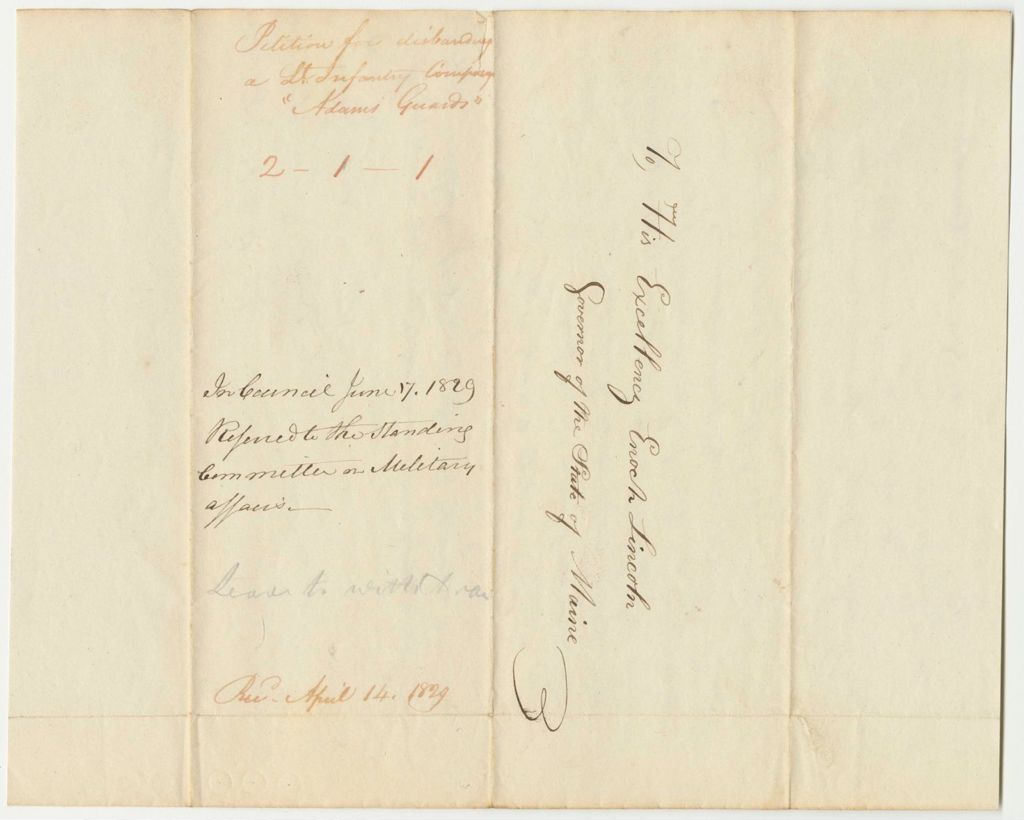 Petition for disbanding
a Lt. Infantry Company
"Adams Guards"
2 - 1 - 1
In Council June 17. 1829
Referred to the Standing
Committee on Military
affairs.
Leave to withdraw
Recd. April 14. 1829
To, His Excellency Enoch Lincoln
Governor of the State of Maine